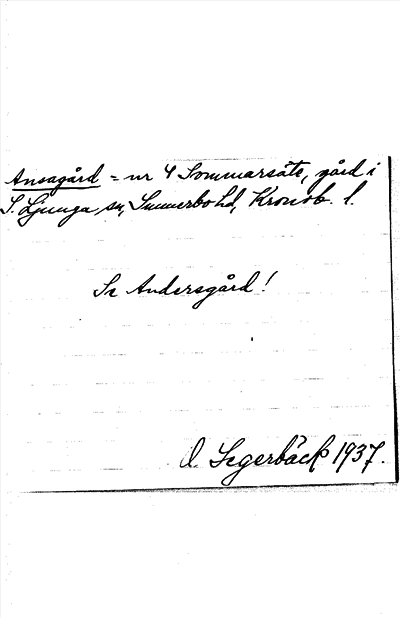 Ansagård = nr 4 Sommarsäte, gård i
S. Ljunga sn, Sunnerbo hd, Kronob. l.
Se Andersgård!
O. Segerbäck 1937.